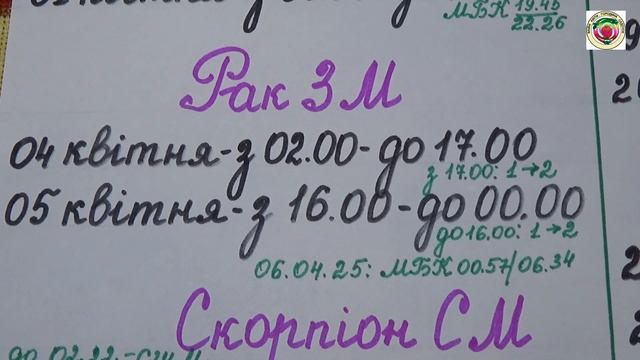 МБК 19.45
22.26
Рак ЗМ
04 квітня - з 02.00 - до 17.00
з 17.00: 1→2
05 квітня - з 16.00 - до 00.00
до 16.00: 1→2
06.04.25: МБК 00.57/06.34
Скорпіон СМ